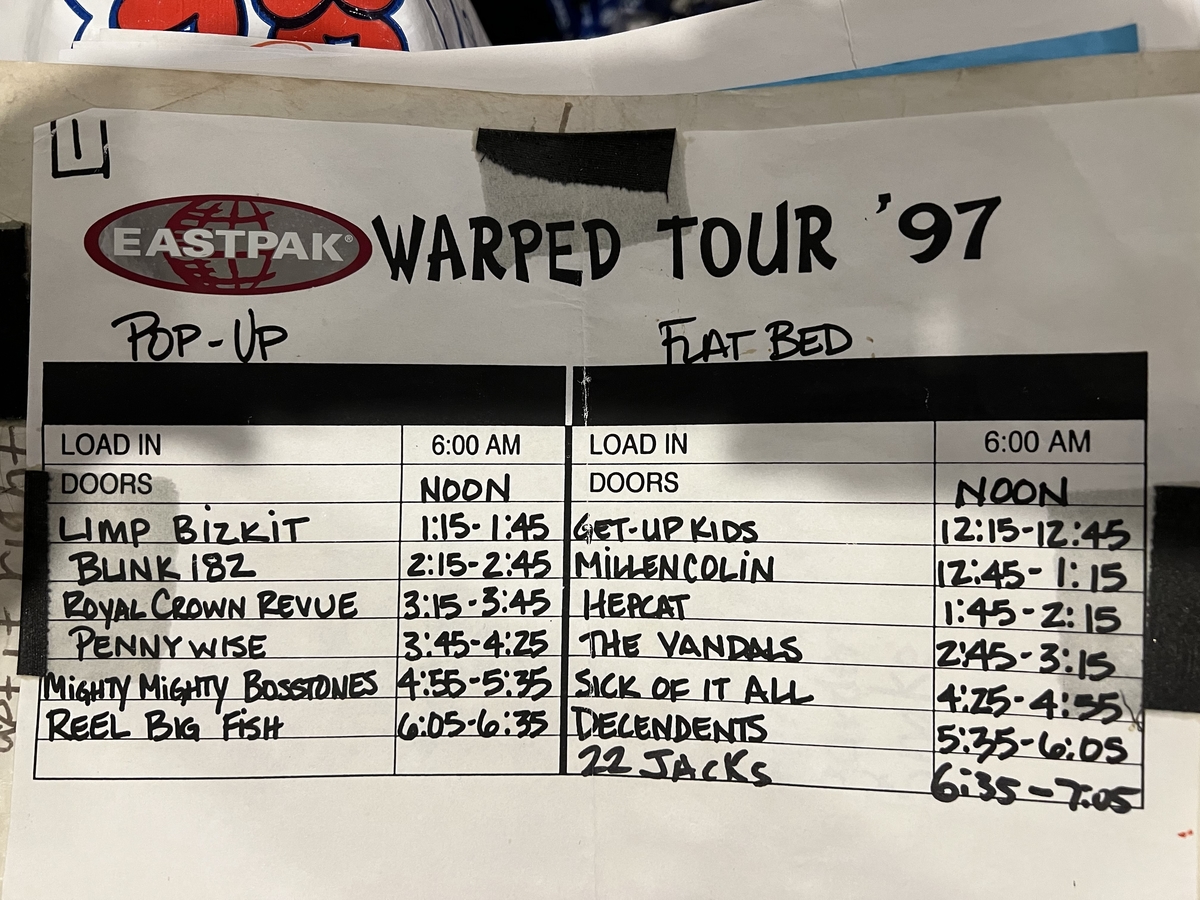 1
EASTPAK® WARPED TOUR '97
POP-UP
FLAT BED
LOAD IN 6:00 AM
DOORS NOON
LIMP BIZKIT 1:15-1:45
BLINK 182 2:15-2:45
ROYAL CROWN REVUE 3:15-3:45
PENNYWISE 3:45-4:25
MIGHTY MIGHTY BOSSTONES 4:55-5:35
REEL BIG FISH 6:05-6:35
LOAD IN 6:00 AM
DOORS NOON
GET-UP KIDS 12:15-12:45
MILLENCOLIN 12:45-1:15
HEPCAT 1:45-2:15
THE VANDALS 2:45-3:15
SICK OF IT ALL 4:25-4:55
DECENDENTS 5:35-6:05
22 JACKS 6:35-7:05